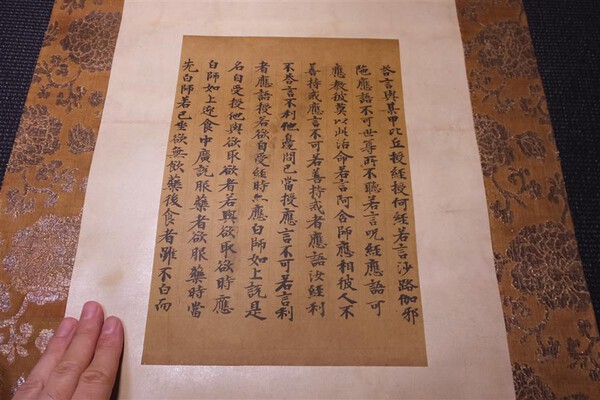 荅言與某甲比丘授経授何経若言沙路伽邪
陁應語不可世尊所不聽若言呪経應語可
應教彼莫以此治命若言阿含師應相彼人不
善持戒應言不可若善持戒者應語汝経利
不荅言不利他邊問已當授應言不可若言利
者應語授若欲自受経時亦應白師如上說是
名自受授他與欲取欲者若與欲取欲時應
白師如上迎食中廣說服藥者欲服藥時當
先白師若已坐欲無飲藥後食者雖不白而